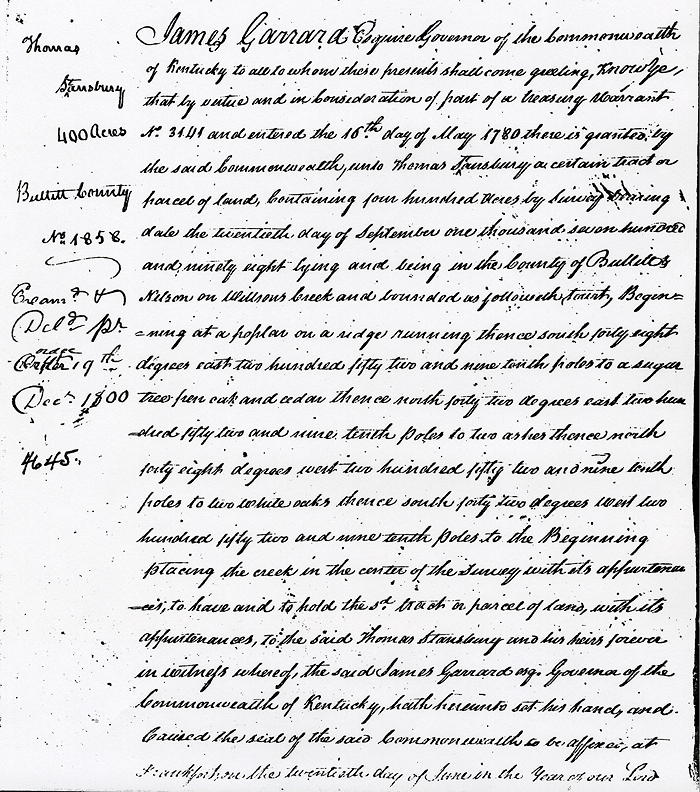 Thomas
Stansbury
400 Acres
Bullitt County
No. 1858.
Exam.d &
Del.d pr
order 19th
Dec.r 1800
4645.
James Garrard Esquire Governor of the Commonwealth
of Kentucky to all to whom these presents shall come greeting, Know Ye,
that by virtue and in Consideration of part of a Treasury Warrant
No. 3141 and entered the 16th day of May 1780 there is granted by
the said Commonwealth, unto Thomas Stansbury a certain tract or
parcel of land, Containing four hundred Acres by Survey bearing
date the twentieth day of September one thousand seven hundred
and ninety eight lying and being in the County of Bullitt &
Nelson on Willsons Creek and bounded as followeth, towit, Begin=
=ning at a poplar on a ridge running thence south forty eight
degrees east two hundred fifty two and nine tenth poles to a sugar
tree pen oak and cedar thence north forty two degrees east two hun
dred fifty two and nine tenth Poles to two ashes thence north
forty eight degrees west two hundred fifty two and nine tenth
poles to two white oaks thence south forty two degrees west two
hundred fifty two and nine tenth Poles to the Beginning
placing the creek in the center of the Survey with its appurtenan
=ces, to have and to hold the sd. tract or parcel of land, with its
appurtenances, to the said Thomas Stansbury and his heirs forever
in witness whereof, the said James Garrard esqr. Governor of the
Commonwealth of Kentucky, hath hereunto set his hand, and
Caused the seal of the said Commonwealth to be affixed, at
Frankfort, on the twentieth day of June in the Year of our Lord